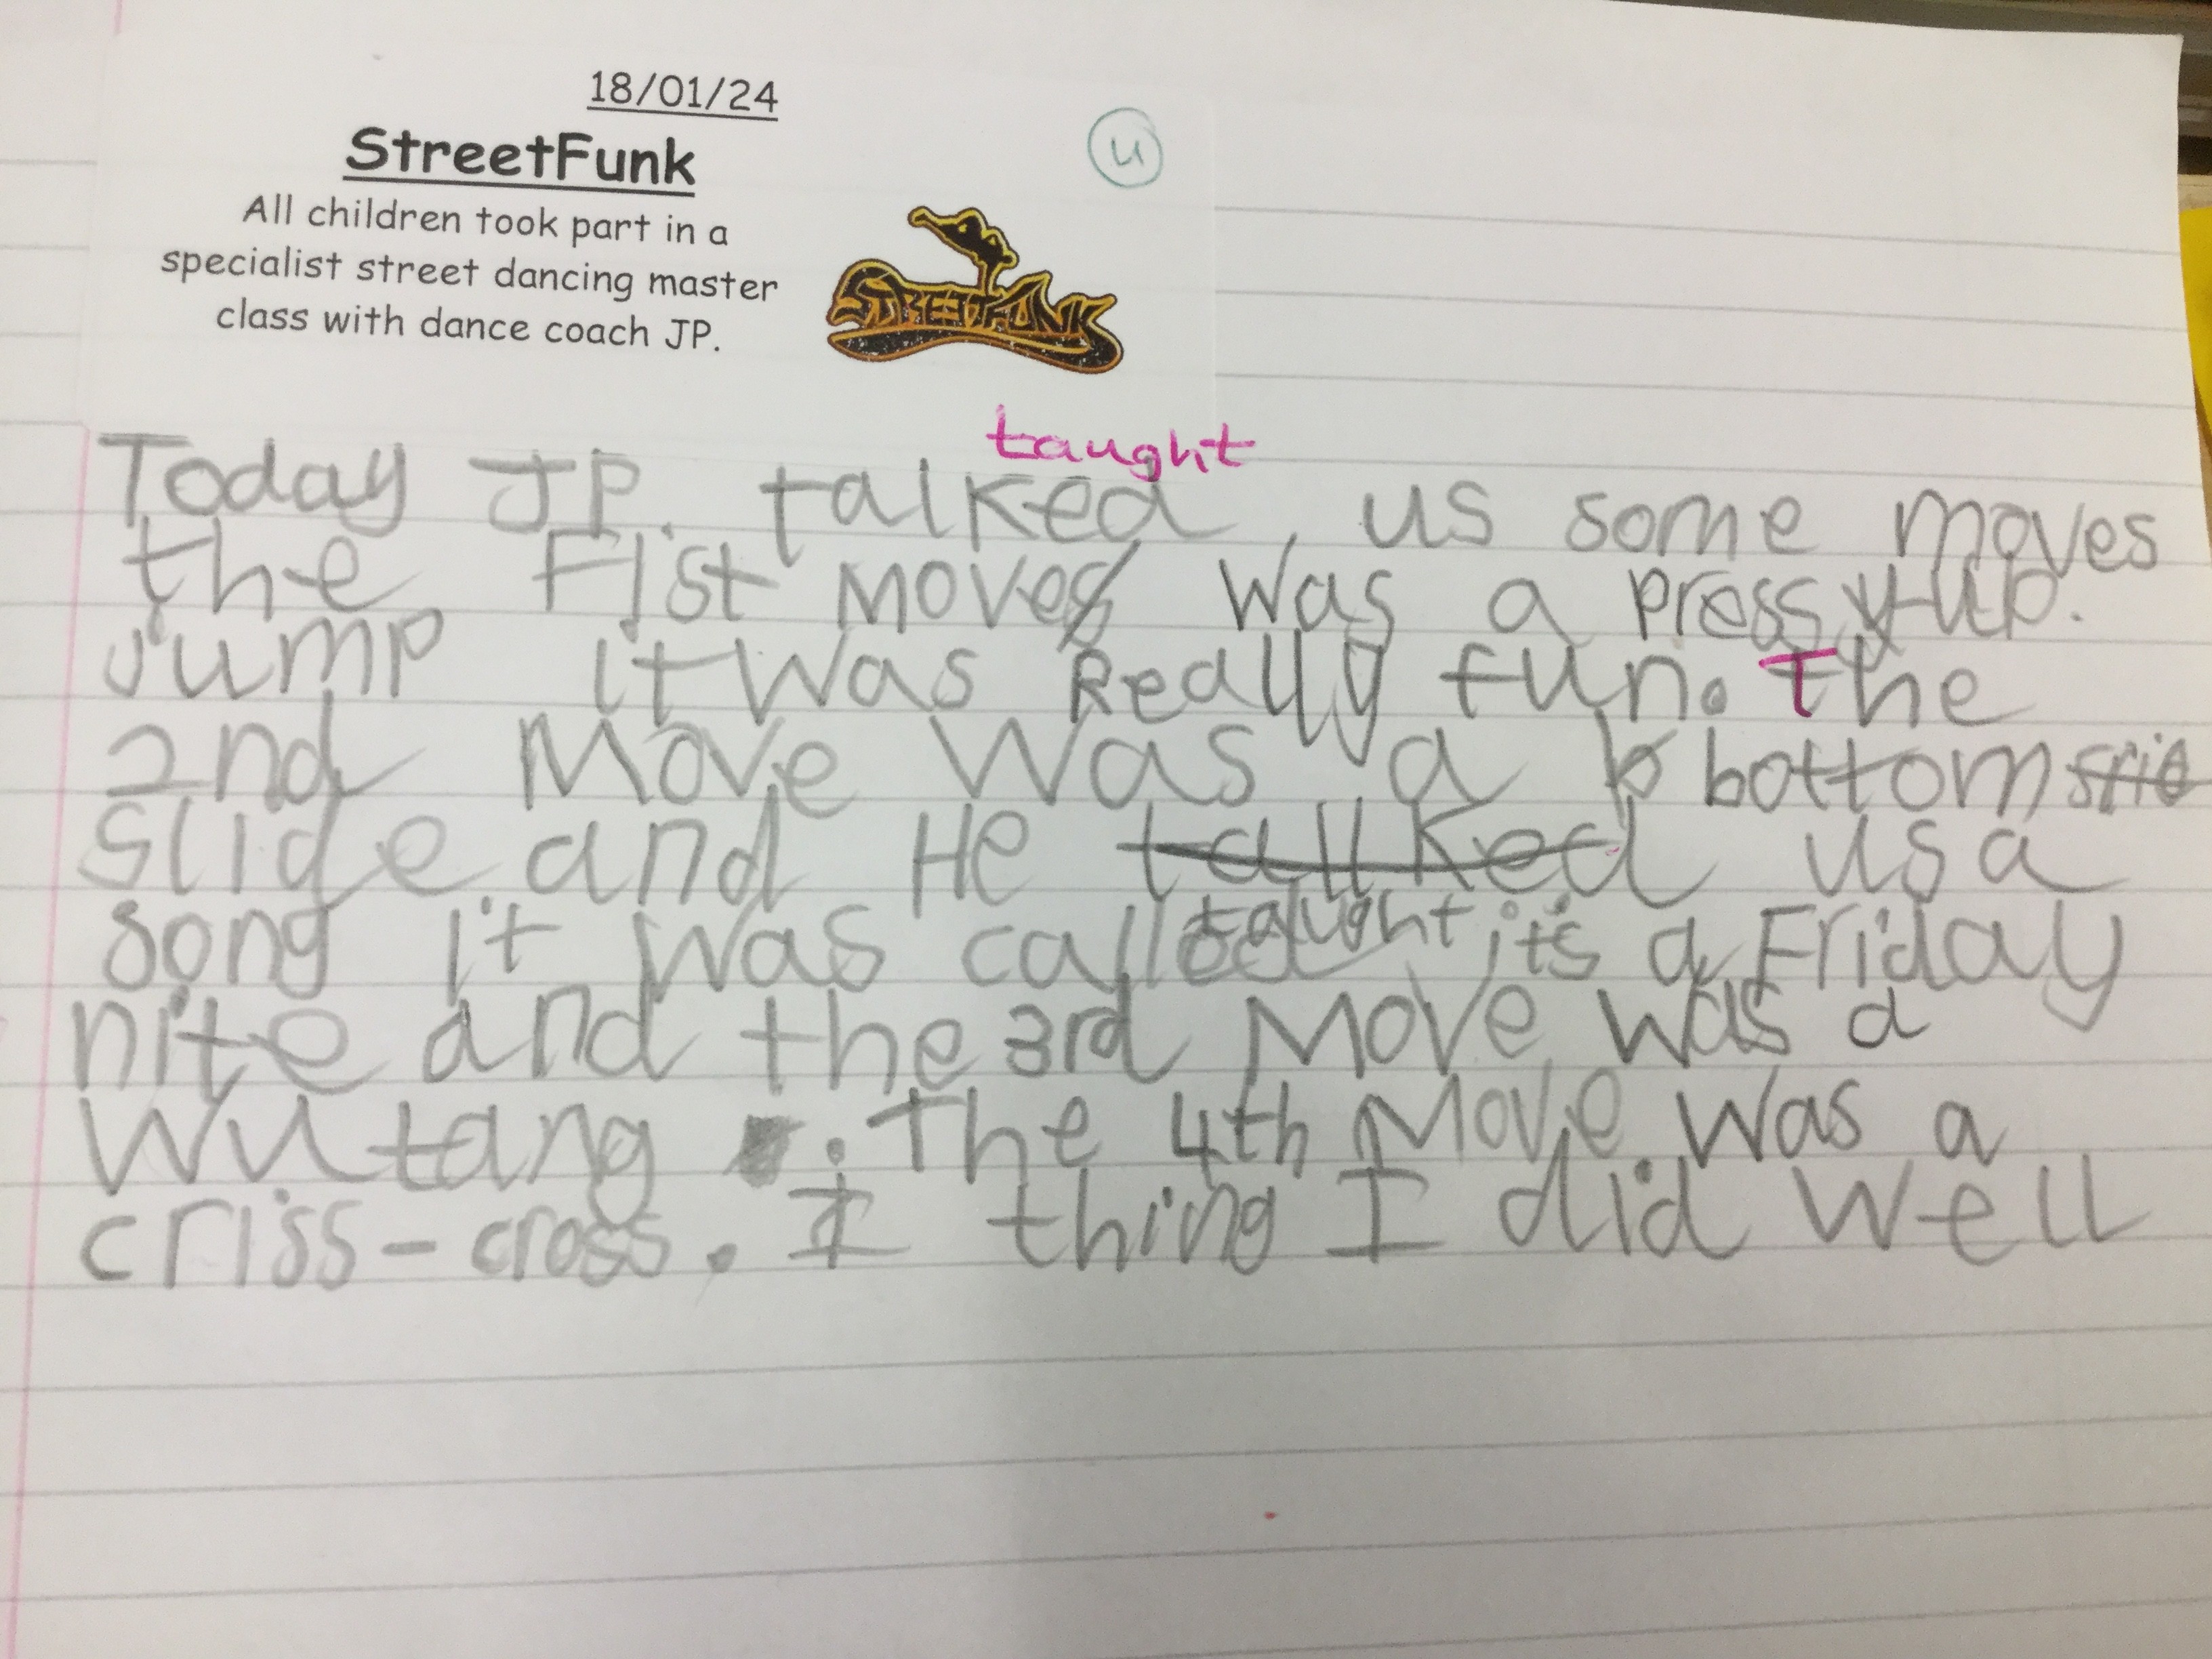 18/01/24
StreetFunk
All children took part in a
specialist street dancing master
class with dance coach JP.
U
STREETFUNK
taught
Today JP. talked, us some moves
the Fist moves was a press y-up.
Jump it was Really fun. The
2nd Move was a b bottom
slide and He tallked us a
taught
song it was called it's a Friday
nite and the 3rd Move was a
wutang . The 4th Move was a
criss-cross. I thing I did well